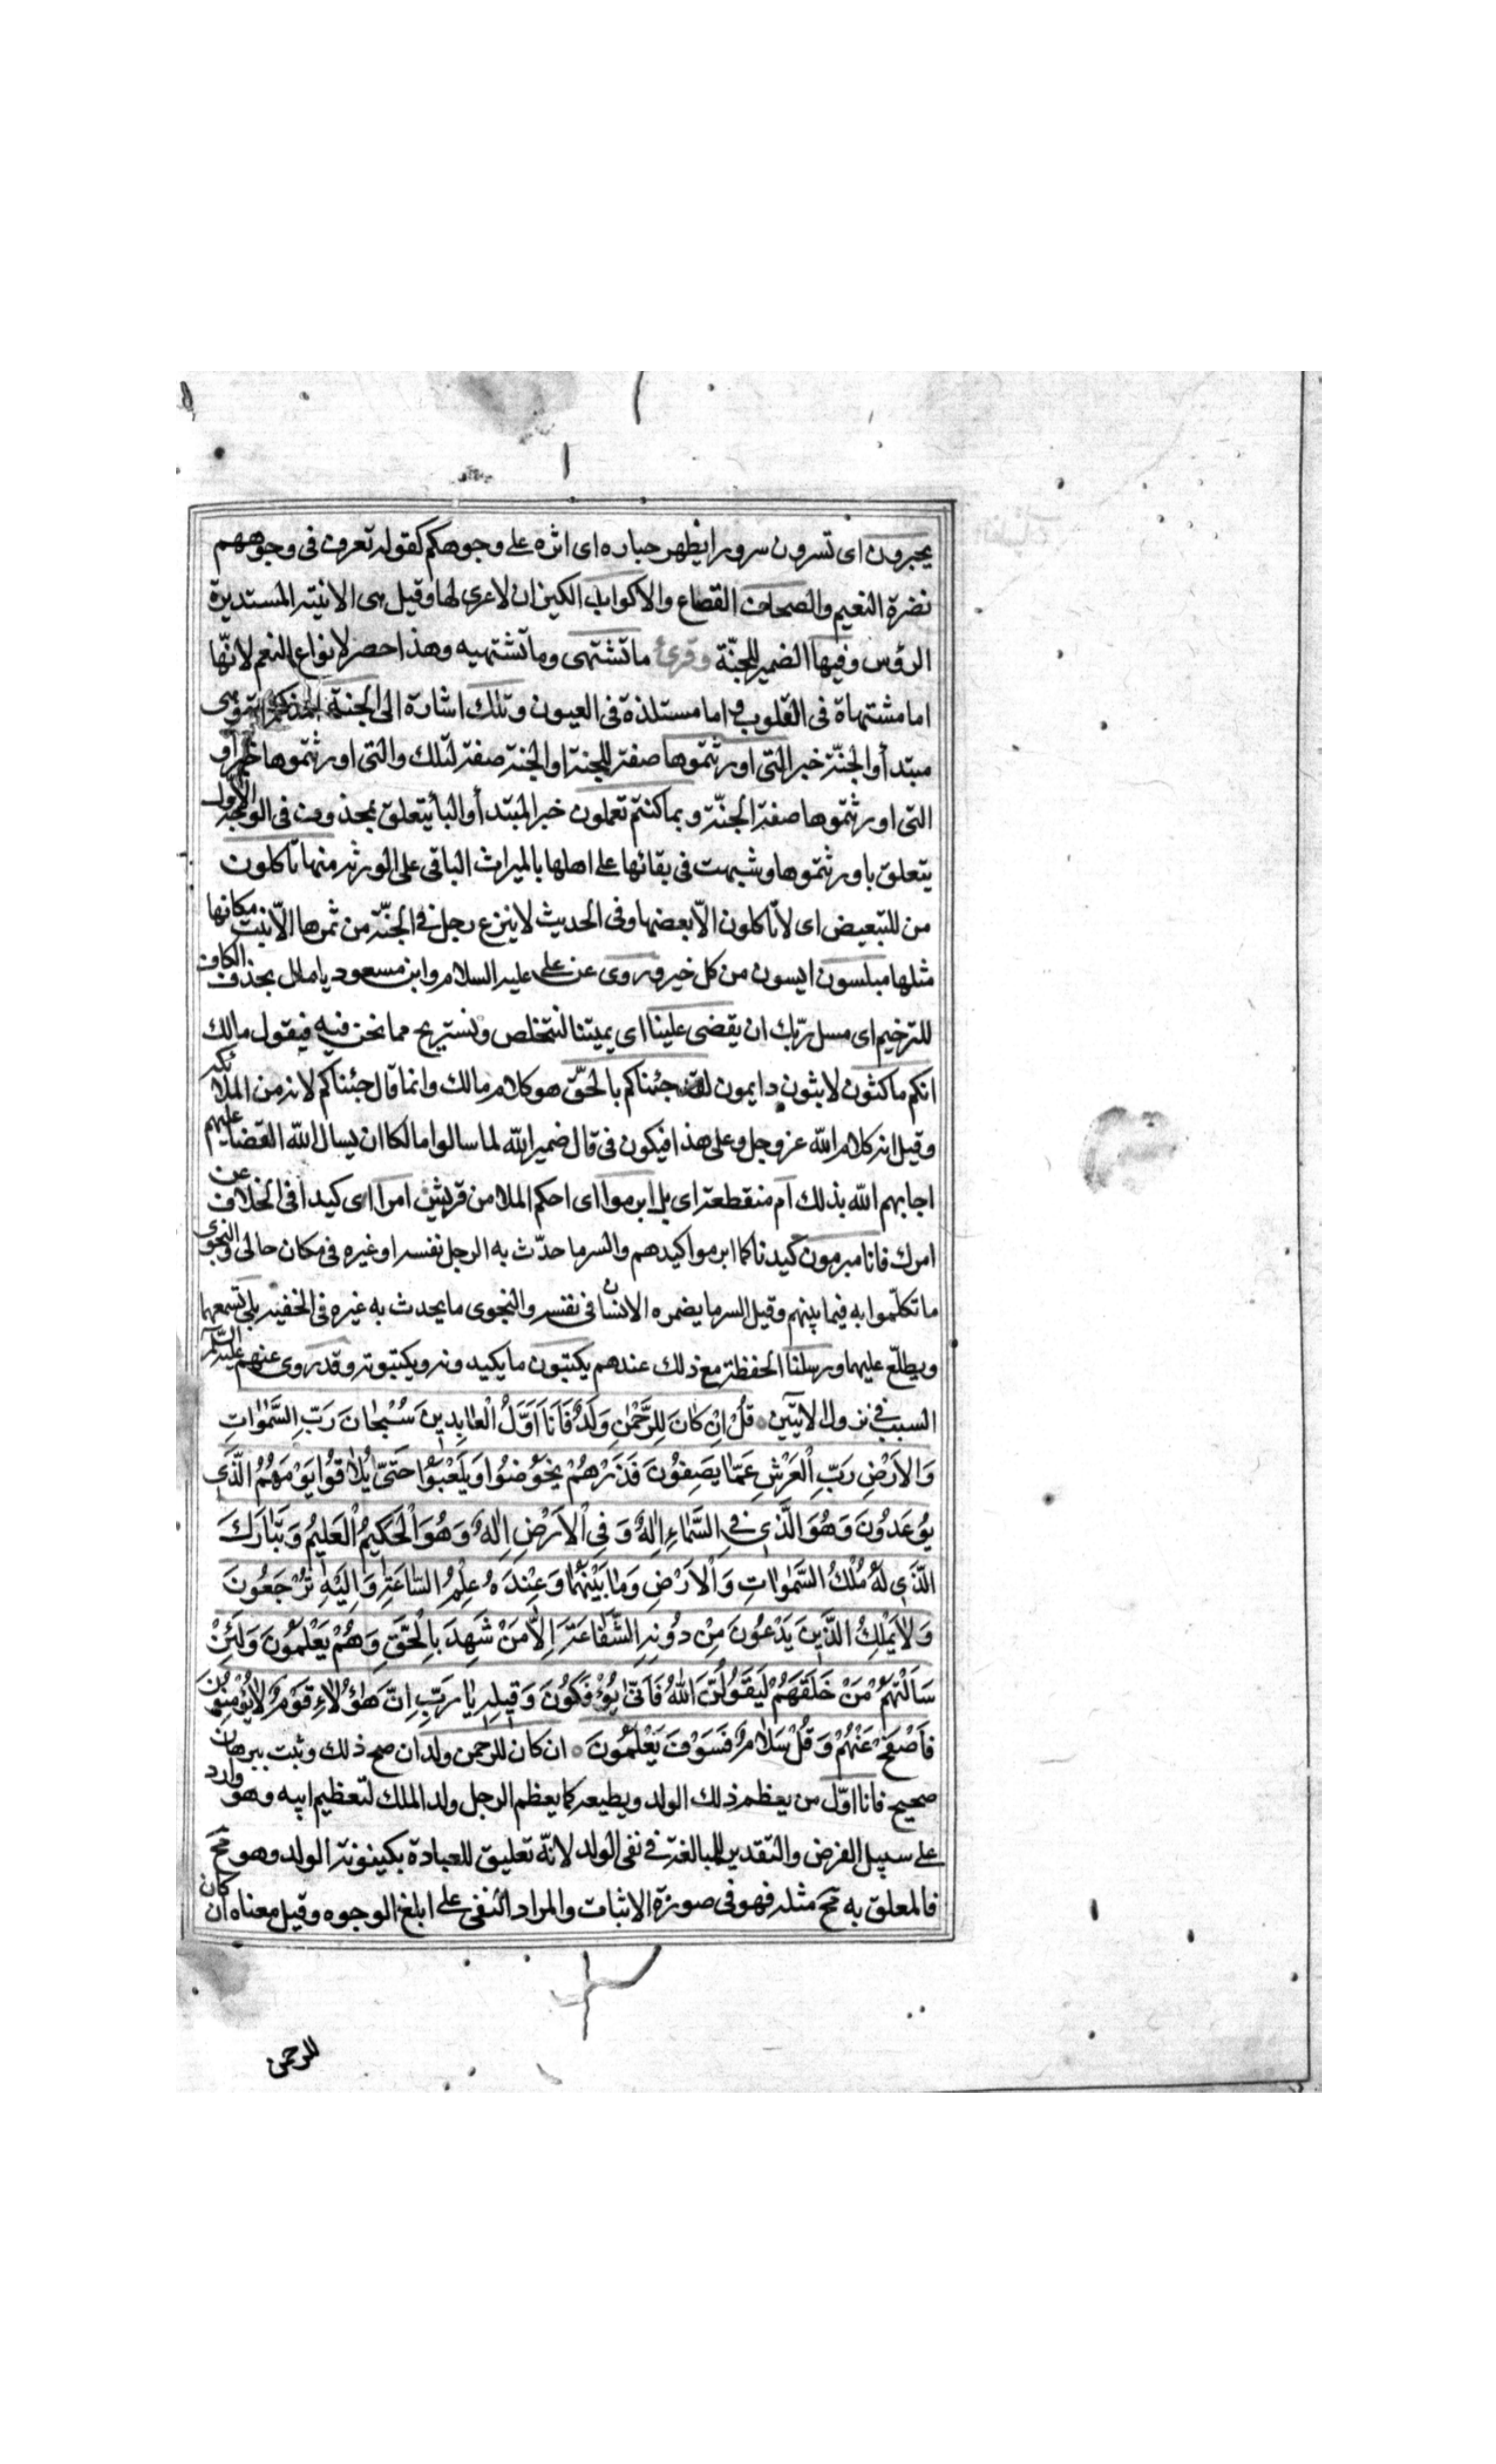 يحبرون اى تسرون سرورا يظهر حباره اى اثره على وجوهكم كقوله تعرف فى وجوههم
نضرة النعيم والصحاف القصاع والاكواب الكيزان لا عرى لها وقيل هى الانية المستديرة
الرؤس وفيها الضمير للجنّة وقرئ ما تشتهى وما تشتهيه وهذا حصر لانواع النعم لانّها
اما مشتهاة فى القلوب واما مستلذة فى العيون وتلك اشارة الى الجنة المذكورة وهى
مبتدأ والجنّة خبر التى اورثتموها صفة للجنة او الجنة صفة لتلك والتى اورثتموها خبر او
التى اورثتموها صفة الجنّة وبما كنتم تعملون خبر المبتدأ والبأ يتعلق بمحذوف فى الوجه الاول
يتعلق باورثتموها وشبهت فى بقائها على اهلها بالميراث الباقى على الورثة منها تاكلون
من للتبعيض اى لا تاكلون الّا بعضها وفى الحديث لا ينزع رجل فى الجنّة من ثمرها الّا نبت مكانها
مثلها مبلسون ايسون من كل خير وروى عن على عليه السلام وابن مسعود يا مال بحذف الكاف
للترخيم اى مسل ربّك ان يقضى علينا اى يميتنا لنتخلص ونستريح مما نحن فيه فيقول مالك
انكم ماكثون لابثون دايمون لقد جئناكم بالحقّ هو كلام مالك وانما قال جئناكم لانه من الملائكة
وقيل انه كلام الله عز وجل وعلى هذا فيكون فى قال ضمير الله لما سالوا مالكا ان يسال الله القضا عليهم
اجابهم الله بذلك ام منقطعة اى بل ابرموا اى احكم الملا من قريش امرا اى كيدا فى الخلاف عن
امرك فانا مبرمون كيدنا كما ابرموا كيدهم والسر ما حدّث به الرجل نفسه او غيره فى مكان خالى والنجوى
ما تكلّموا به فيما بينهم وقيل السر ما يضمره الانسان فى نفسه والنجوى ما يحدث به غيره فى الخفية بلى نسمعها
ويطلّع عليهما ورسلنا الحفظة مع ذلك عندهم يكتبون ما يكيدونه ويكتبونه وقد روى عنهم عليهم السّلم
السبب فى نزول الايتين قُلْ اِنْ كَانَ لِلرَّحْمٰنِ وَلَدٌ فَاَنَا اَوَّلُ الْعَابِدِينَ سُبْحَانَ رَبِّ السَّمٰوَاتِ
وَالْاَرْضِ رَبِّ الْعَرْشِ عَمَّا يَصِفُونَ فَذَرْهُمْ يَخُوضُوا وَيَلْعَبُوا حَتّىٰ يُلَاقُوا يَوْمَهُمُ الَّذِى
يُوعَدُونَ وَهُوَ الَّذِى فِى السَّمَاءِ اِلٰهٌ وَفِى الْاَرْضِ اِلٰهٌ وَهُوَ الْحَكِيمُ الْعَلِيمُ وَتَبَارَكَ
الَّذِى لَهُ مُلْكُ السَّمٰوَاتِ وَالْاَرْضِ وَمَا بَيْنَهُمَا وَعِنْدَهُ عِلْمُ السَّاعَةِ وَاِلَيْهِ تُرْجَعُونَ
وَلَا يَمْلِكُ الَّذِينَ يَدْعُونَ مِنْ دُونِهِ الشَّفَاعَةَ اِلَّا مَنْ شَهِدَ بِالْحَقِّ وَهُمْ يَعْلَمُونَ وَلَئِنْ
سَاَلْتَهُمْ مَنْ خَلَقَهُمْ لَيَقُولُنَّ اللهُ فَاَنّىٰ يُؤْفَكُونَ وَقِيلِهِ يَا رَبِّ اِنَّ هٰؤُلَاءِ قَوْمٌ لَا يُؤْمِنُونَ
فَاصْفَحْ عَنْهُمْ وَقُلْ سَلَامٌ فَسَوْفَ يَعْلَمُونَ ان كان للرحمن ولد ان صح ذلك وثبت ببرهان
صحيح فانا اوّل من يعظم ذلك الولد ويطيعه كما يعظم الرجل ولد الملك لتعظيم ابيه وهو وارد
على سبيل الفرض والتقدير للمبالغة فى نفى الولد لانّه تعليق للعبادة بكينونة الولد وهو مح
فالمعلق به مح مثله فهو فى صورة الاثبات والمراد النفى على ابلغ الوجوه وقيل معناه ان كان
للرحمن